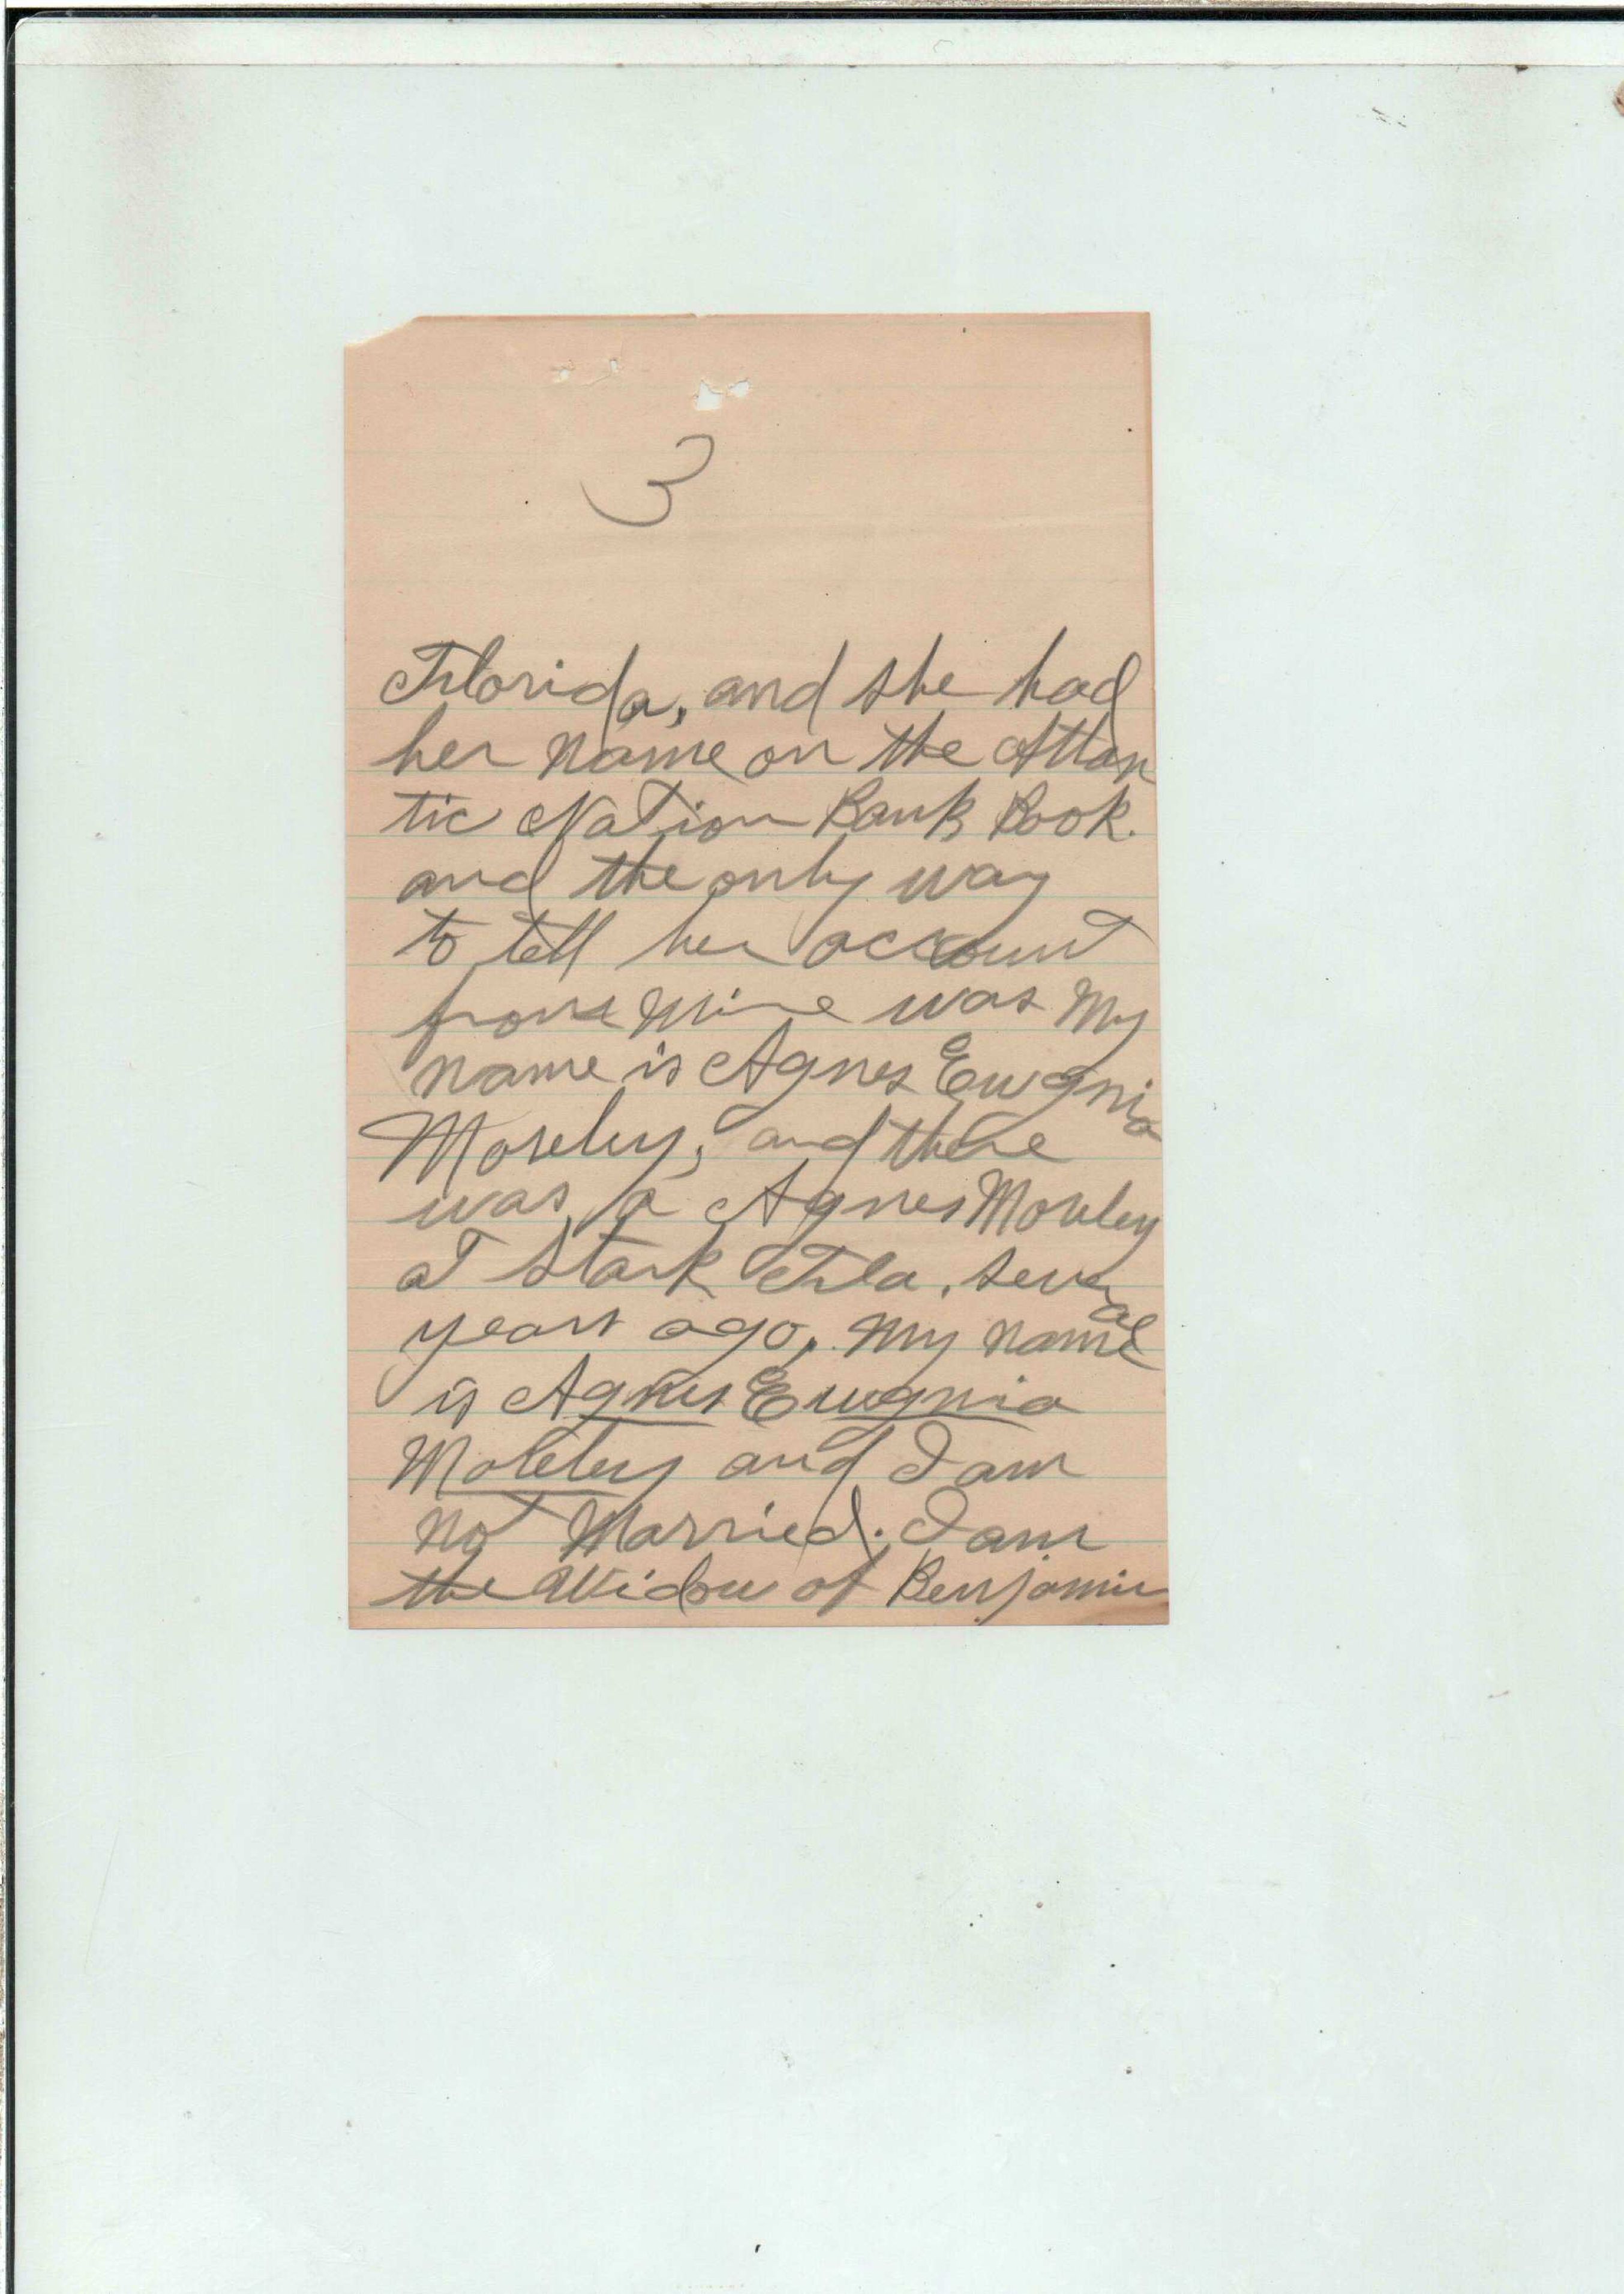 3
Florida, and she had
her name on the Atlan
tic Nation Bank Book.
and the only way
to tell her account
from mine was My
name is Agnes Euginia
Moseley, and there
was a Agnes Moseley
at Stark Fla. several
years ago, my name
is Agnes Euginia
Moseley and I am
not Married. I am
the Widow of Benjamin